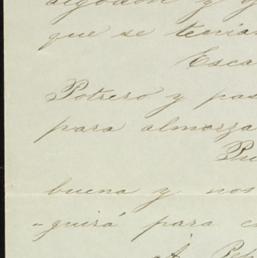 algodon y
que se tenia
Esca
Potrero y pas
para almorza
Pu
buena y nos
-guirá para c
A Pep